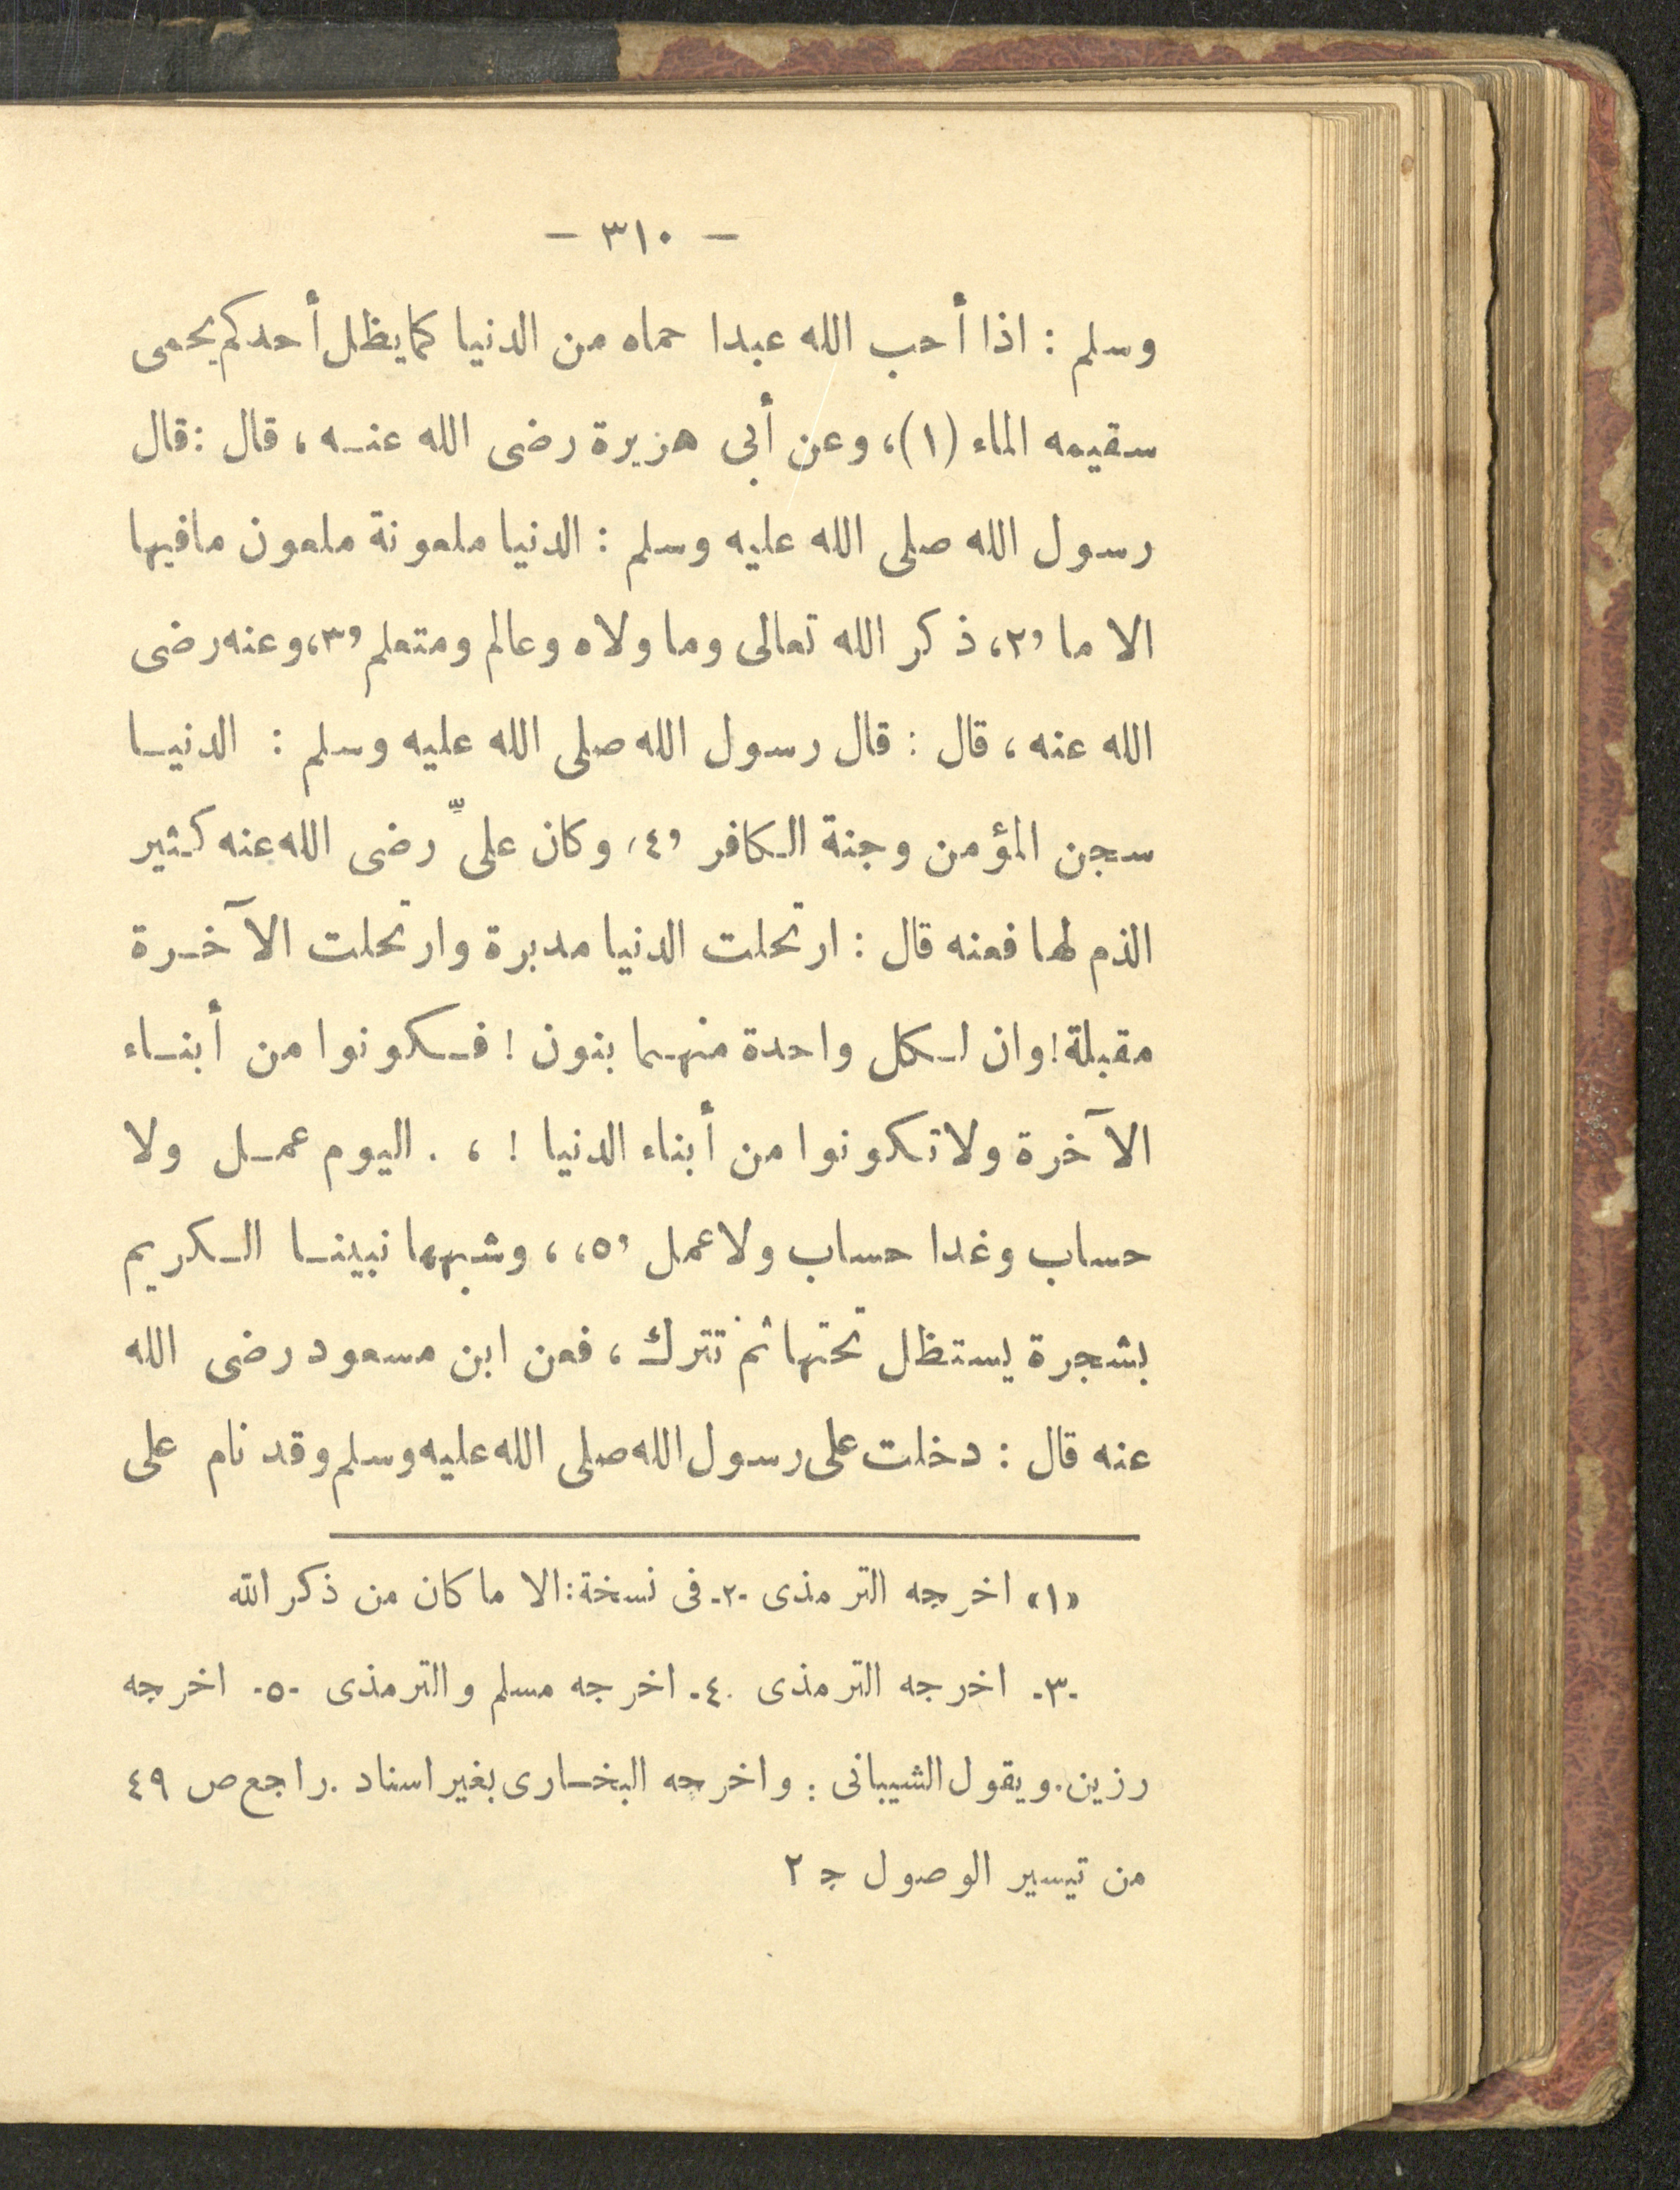 — ٣١٠ —
وسلم : اذا أحب الله عبدا حماه من الدنيا كما يظل أحدكم يحمى
سقيمه الماء (١)، وعن أبى هريرة رضى الله عنه ، قال : قال
رسول الله صلى الله عليه وسلم : الدنيا ملعونة ملعون مافيها
الا ما «٢» ذكر الله تعالى وما ولاه وعالم ومتعلم «٣» وعنه رضى
الله عنه ، قال : قال رسول الله صلى الله عليه وسلم : الدنيا
سجن المؤمن وجنة الكافر «٤» وكان علىّ رضى الله عنه كثير
الذم لها فعنه قال : ارتحلت الدنيا مدبرة وارتحلت الآخرة
مقبلة ! وان لكل واحدة منهما بنون ! فكونوا من أبناء
الآخرة ولا تكونوا من أبناء الدنيا ! ، . اليوم عمل ولا
حساب وغدا حساب ولا عمل «٥» ، وشبهها نبينا الكريم
بشجرة يستظل تحتها ثم تترك ، فعن ابن مسعود رضى الله
عنه قال : دخلت على رسول الله صلى الله عليه وسلم وقد نام على
«١» اخرجه الترمذى -٢- فى نسخة : الا ما كان من ذكر الله
-٣- اخرجه الترمذى -٤- اخرجه مسلم والترمذى -٥- اخرجه
رزين . ويقول الشيبانى : واخرجه البخارى بغير اسناد . راجع ص ٤٩
من تيسير الوصول ج ٢